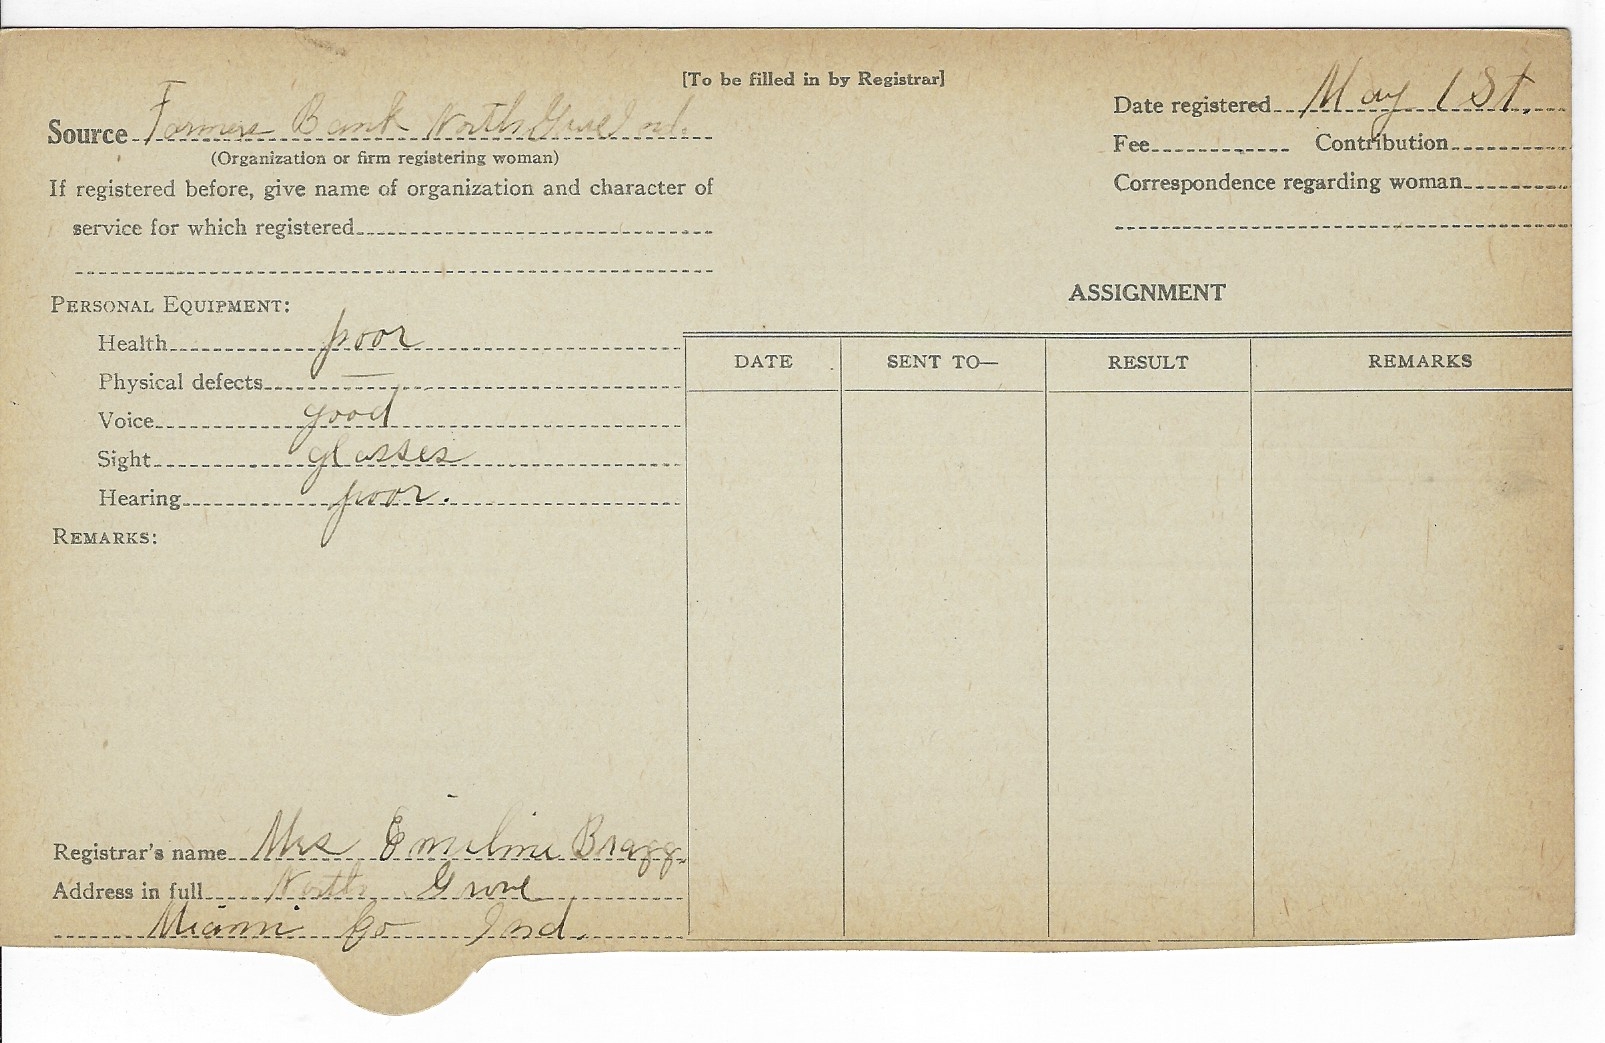 [To be filled in by Registrar]
Source Farmers Bank North Grove Ind.
(Organization or firm registering woman)
If registered before, give name of organization and character of
service for which registered
Date registered May 1St.
Fee Contribution
Correspondence regarding woman
PERSONAL EQUIPMENT:
Health poor
Physical defects —
Voice good
Sight glasses
Hearing poor.
REMARKS:
Registrar's name Mrs Emeline Bragg.
Address in full North Grove
Miami Co Ind.
ASSIGNMENT
DATE SENT TO— RESULT REMARKS